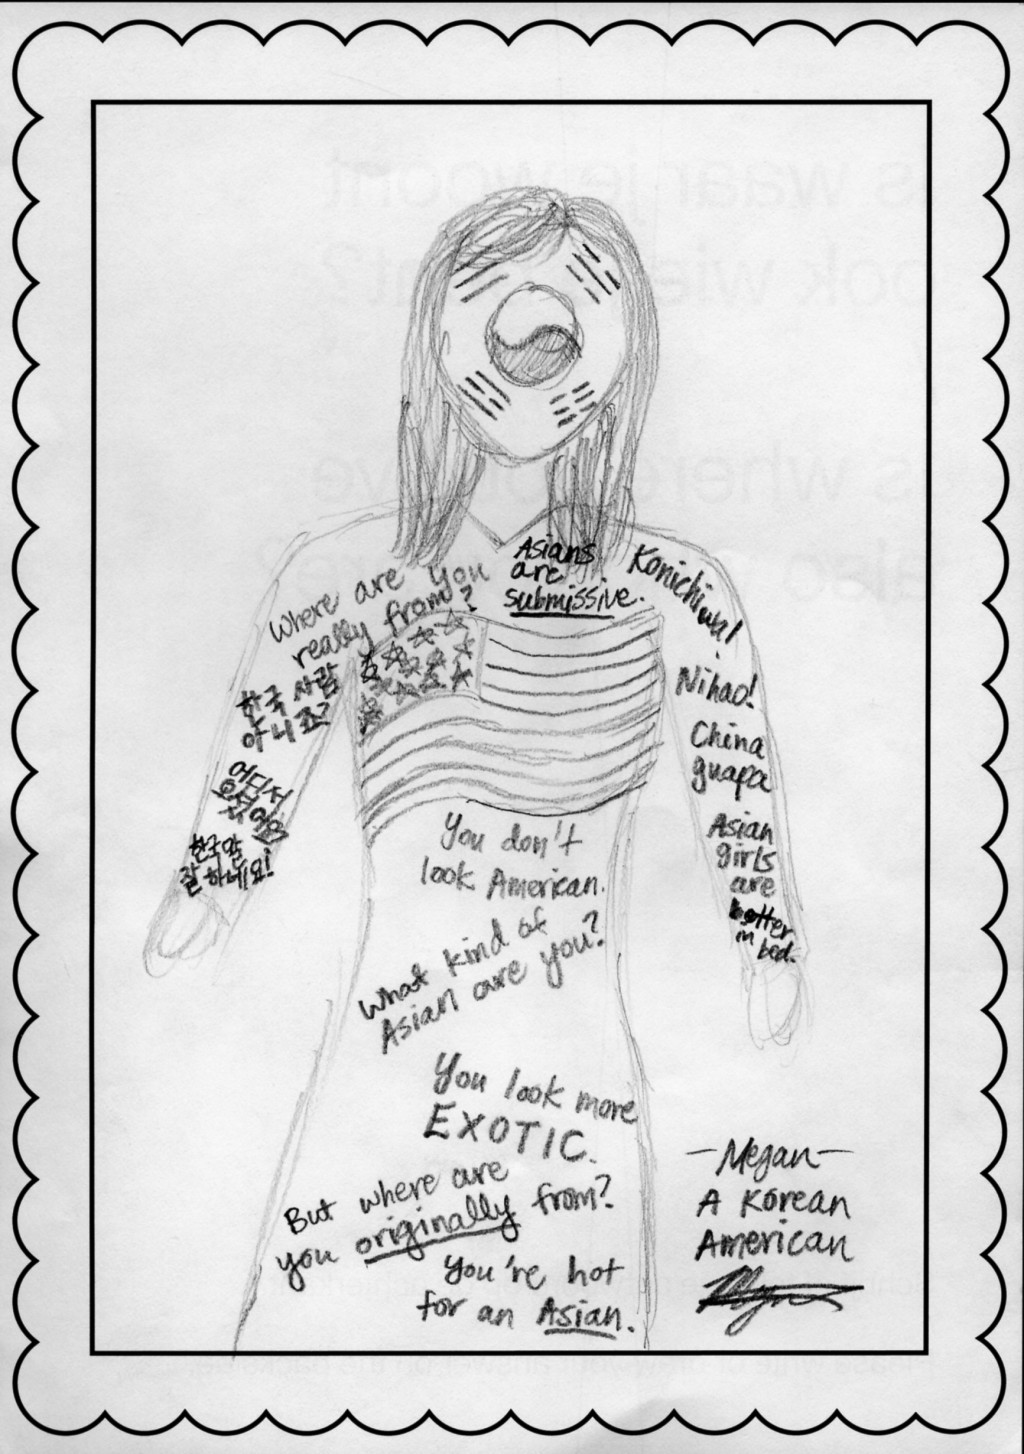 Where are you
really from?
한국 사람
아니죠?
어디서
오셨어요?
한국말
잘 하네요!
Asians
are
submissive.
Konichiwa!
Nihao!
China
guapa
Asian
girls
are
better
in bed.
You don't
look American.
What kind of
Asian are you?
You look more
EXOTIC.
But where are
you originally from?
You're hot
for an Asian.
—Megan—
A Korean
American